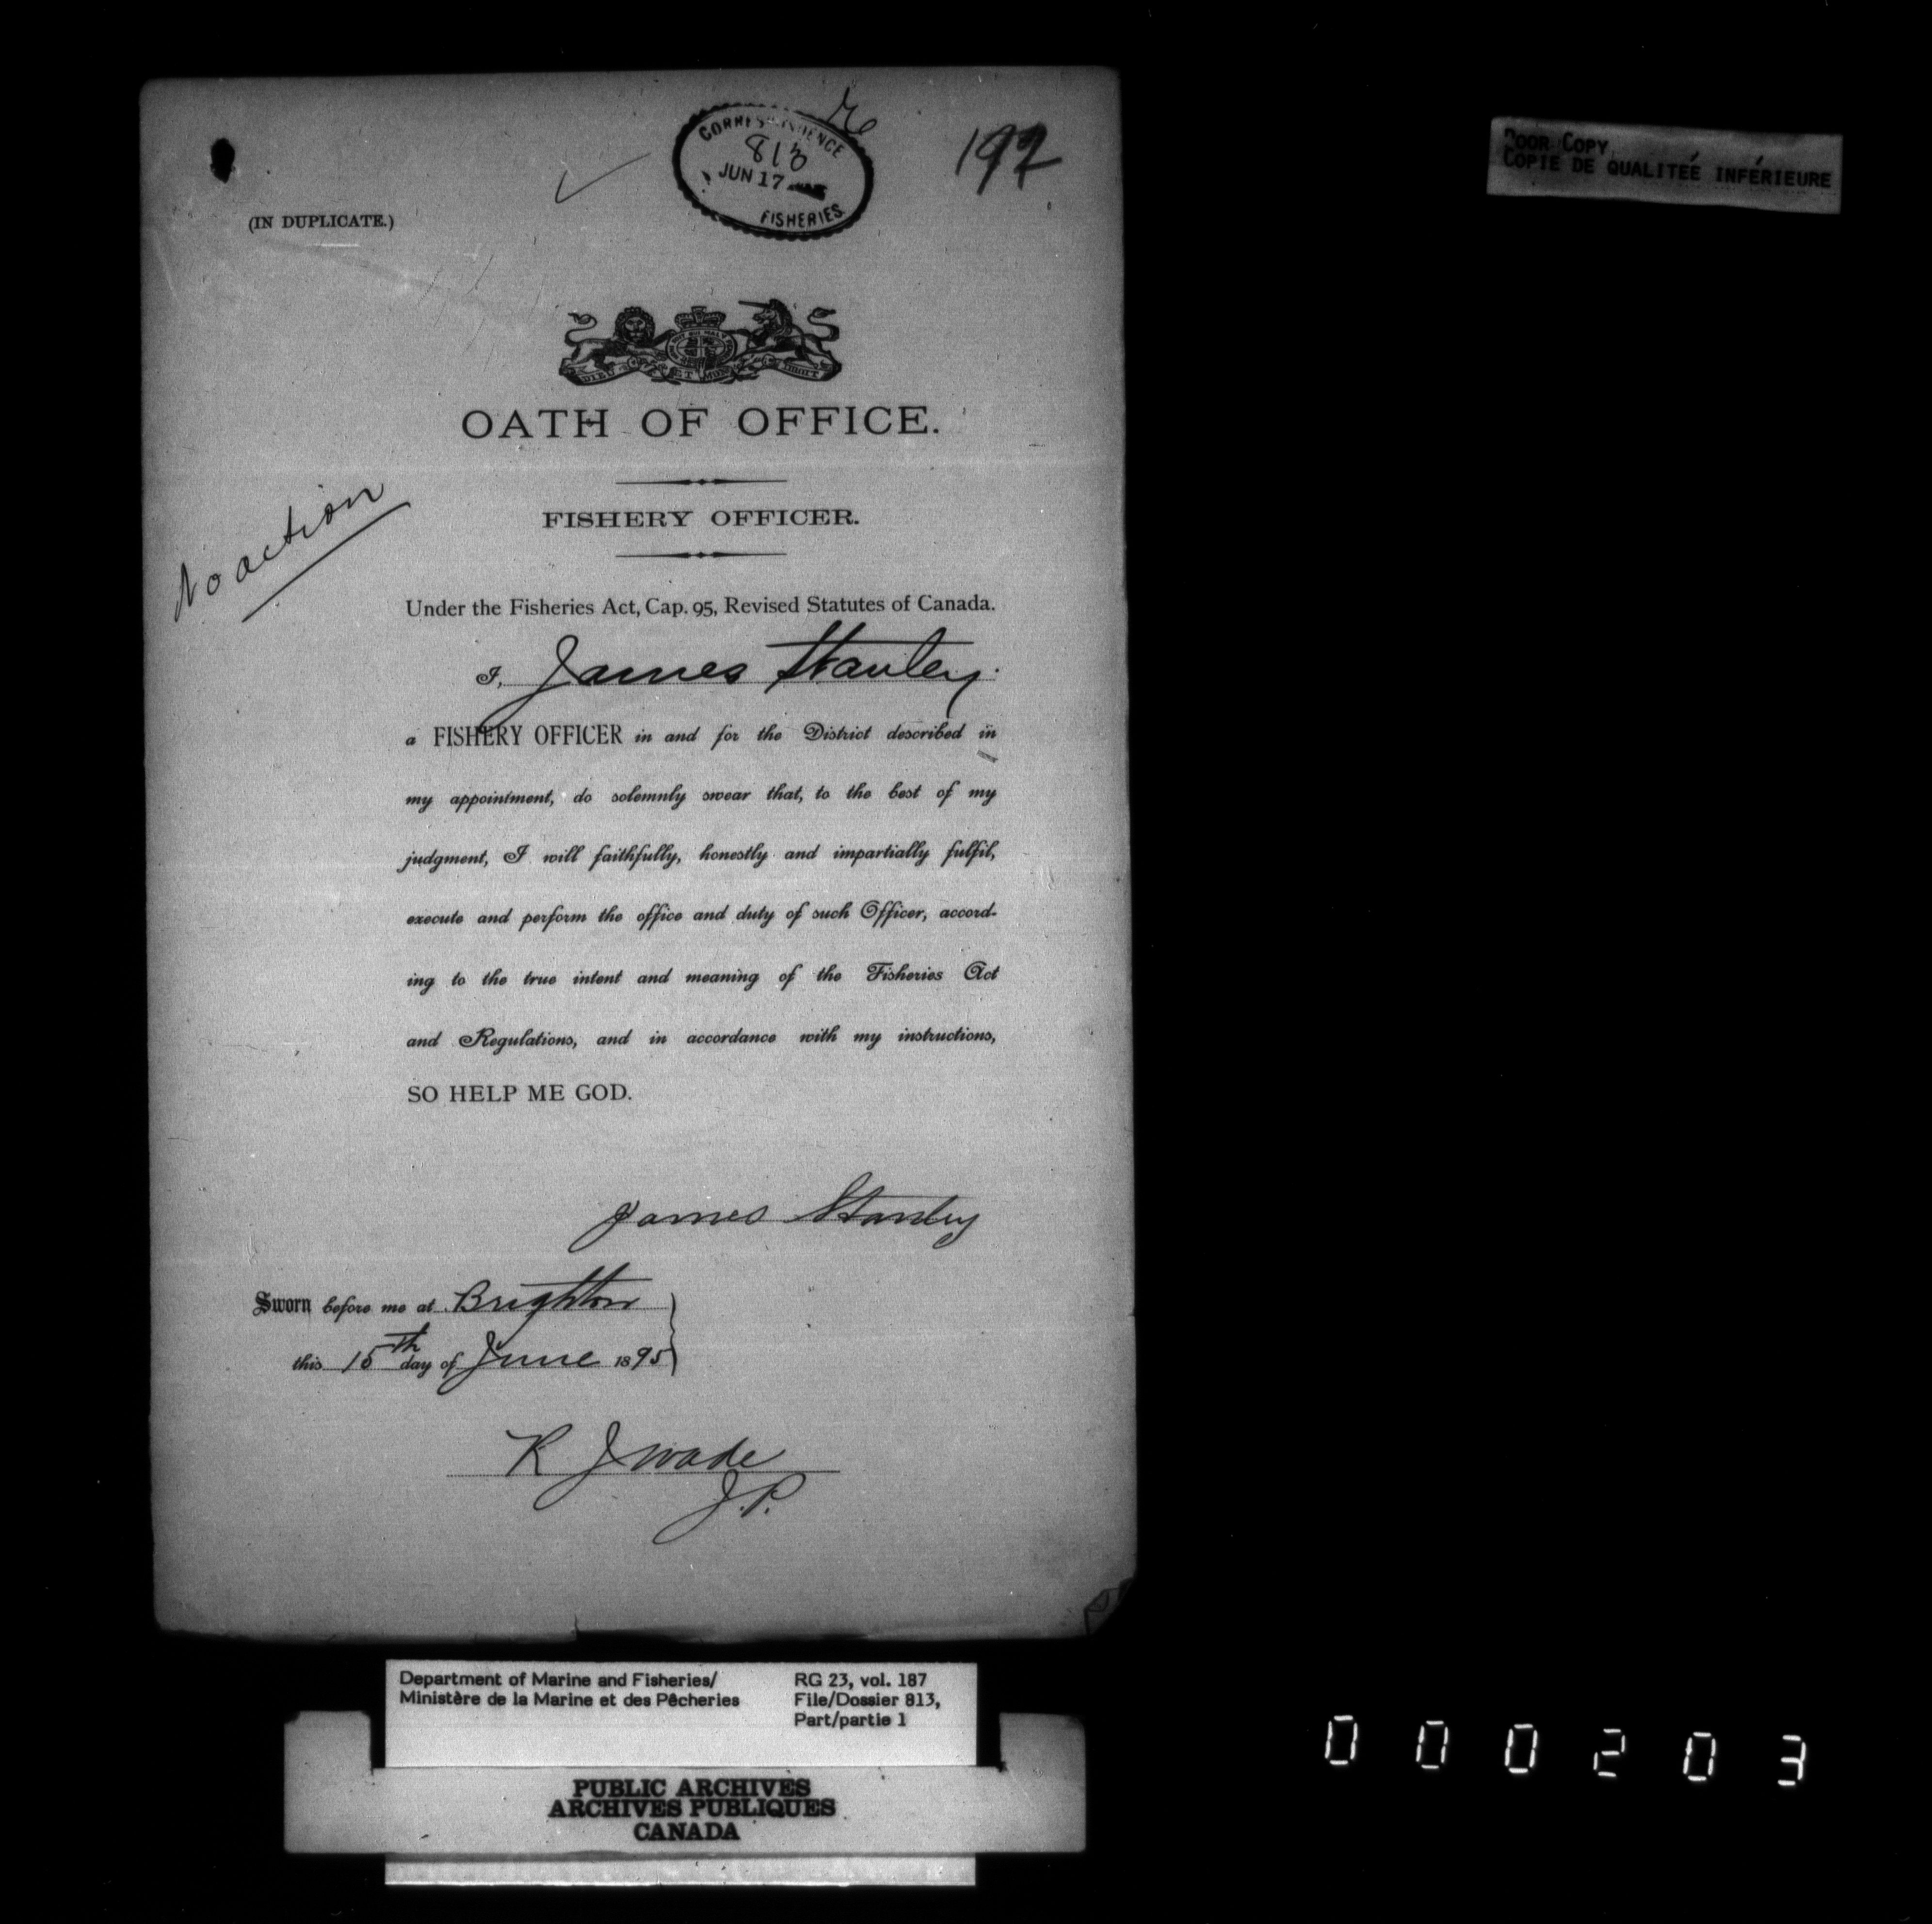 CORRESPONDENCE
813
JUN 17
FISHERIES.
197
POOR COPY
COPIE DE QUALITEÉ INFÉRIEURE
(IN DUPLICATE.)
DIEU ET MON DROIT
OATH OF OFFICE.
FISHERY OFFICER.
No action
Under the Fisheries Act, Cap. 95, Revised Statutes of Canada.
I, James Stanley
a FISHERY OFFICER in and for the District described in
my appointment, do solemnly swear that, to the best of my
judgment, I will faithfully, honestly and impartially fulfil,
execute and perform the office and duty of such Officer, accord-
ing to the true intent and meaning of the Fisheries Act
and Regulations, and in accordance with my instructions,
SO HELP ME GOD.
James Stanley
Sworn before me at Brighton
this 15th day of June 1895
R J Wade
J.P.
Department of Marine and Fisheries/
Ministère de la Marine et des Pêcheries
RG 23, vol. 187
File/Dossier 813,
Part/partie 1
PUBLIC ARCHIVES
ARCHIVES PUBLIQUES
CANADA
000203